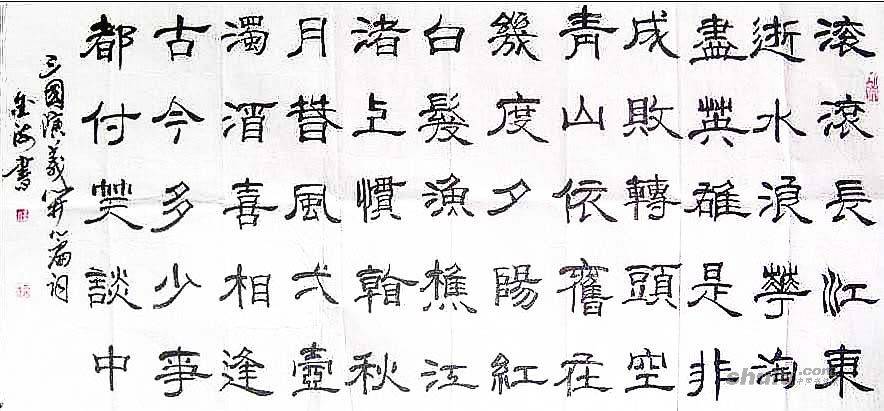 滚滾長江東
逝水浪華淘
盡英雄是非
成敗轉頭空
青山依舊在
幾度夕陽紅
白髮漁樵江
渚上慣看秋
月春風弌壺
濁酒喜相逢
古今多少事
都付笑談中
三國演義開篇詞
書